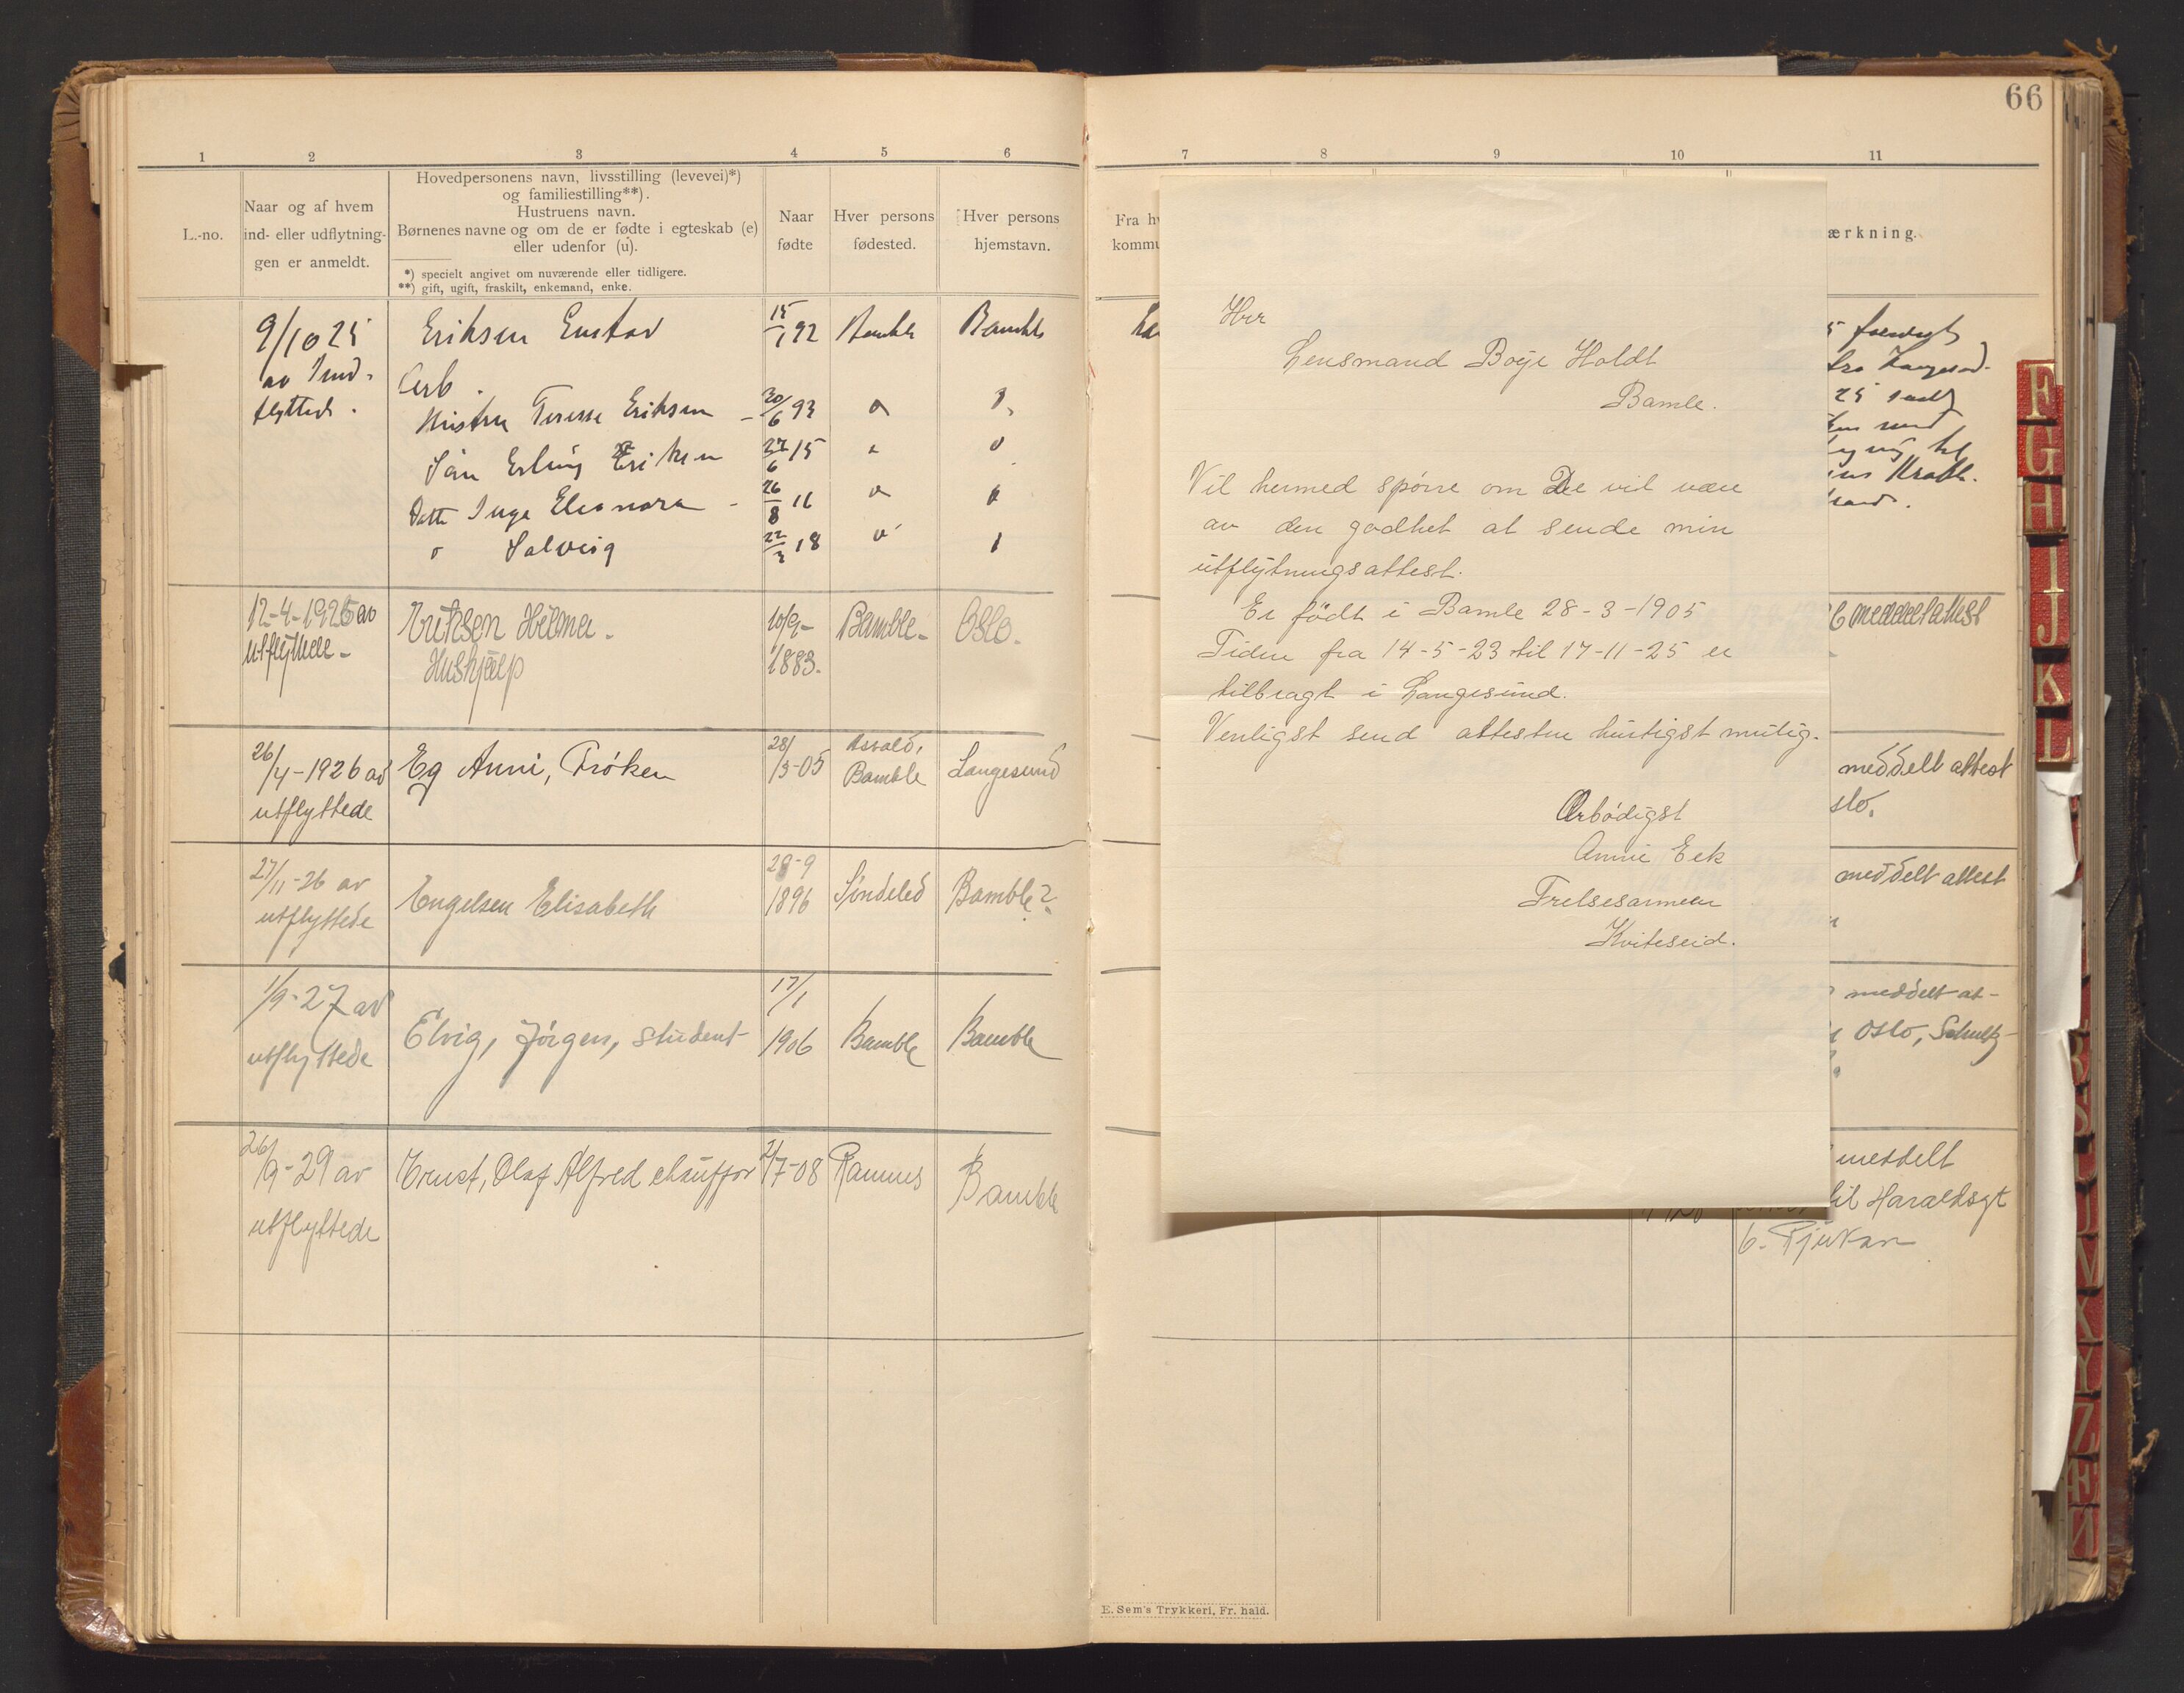 66
1 2 3 4 5 6
L.-no.
Naar og af hvem
ind- eller udflytning-
gen er anmeldt.
Hovedpersonens navn, livsstilling (levevei)*)
og familiestilling**).
Hustruens navn.
Børnenes navne og om de er fødte i egteskab (e)
eller udenfor (u).
*) specielt angivet om nuværende eller tidligere.
**) gift, ugift, fraskilt, enkemand, enke.
Naar
fødte
Hver persons
fødested.
Hver persons
hjemstavn.
9/10 25 Eriksen Gustav 15/1 92 Bamble Bamble
av Ind-
flyttede. Arb.
Hustru Terese Eriksen - 20/6 93
Søn Erling Eriksen 27/6 15
Dattr Inga Eleonora - 26/8 16
" Solveig 22/3 18
12-4-1926 av Eriksen Helma - 10/9- Bamble- Oslo.
utflyttede- Hushjælp 1883.
26/4-1926 av Eg Anni, Frøken 28/3-05 Asvald, Bamble Langesund
utflyttede
27/11-26 av Engelsen Elisabeth 28-9 1896 Søndeled Bamble?
utflyttede
1/9-27 av Elvig, Jørgen, student 17/1 1906 Bamble Bamble
utflyttede
26/9-29 av Ernst, Olaf Alfred chauffør 2/7-08 Ramnes Bamble
utflyttede
7 8 9 10 11
Fra hv
kommu
ærkning.
Herr
Lensmand Boye Holdt
Bamle.
Vil hermed spørre om De vil være
av den godhet at sende min
utflytningsattest.
Er født i Bamle 28-3-1905
Tiden fra 14-5-23 til 17-11-25 er
tilbragt i Langesund.
Venligst send attesten hurtigst mulig.
Ærbødigst
Annie Eek
Frelsesarmeen
Kviteseid.
fra Langesund.
25 sendt
meddelt attest
meddelt attest
slo.
meddelt attest
meddelt at-
Oslo, Schultz-
meddelt
til Haraldsgt
6. Rjukan
E. Sem's Trykkeri, Fr. hald.
F
G
H
I
J
K
L
V
X
Y
Z
Æ